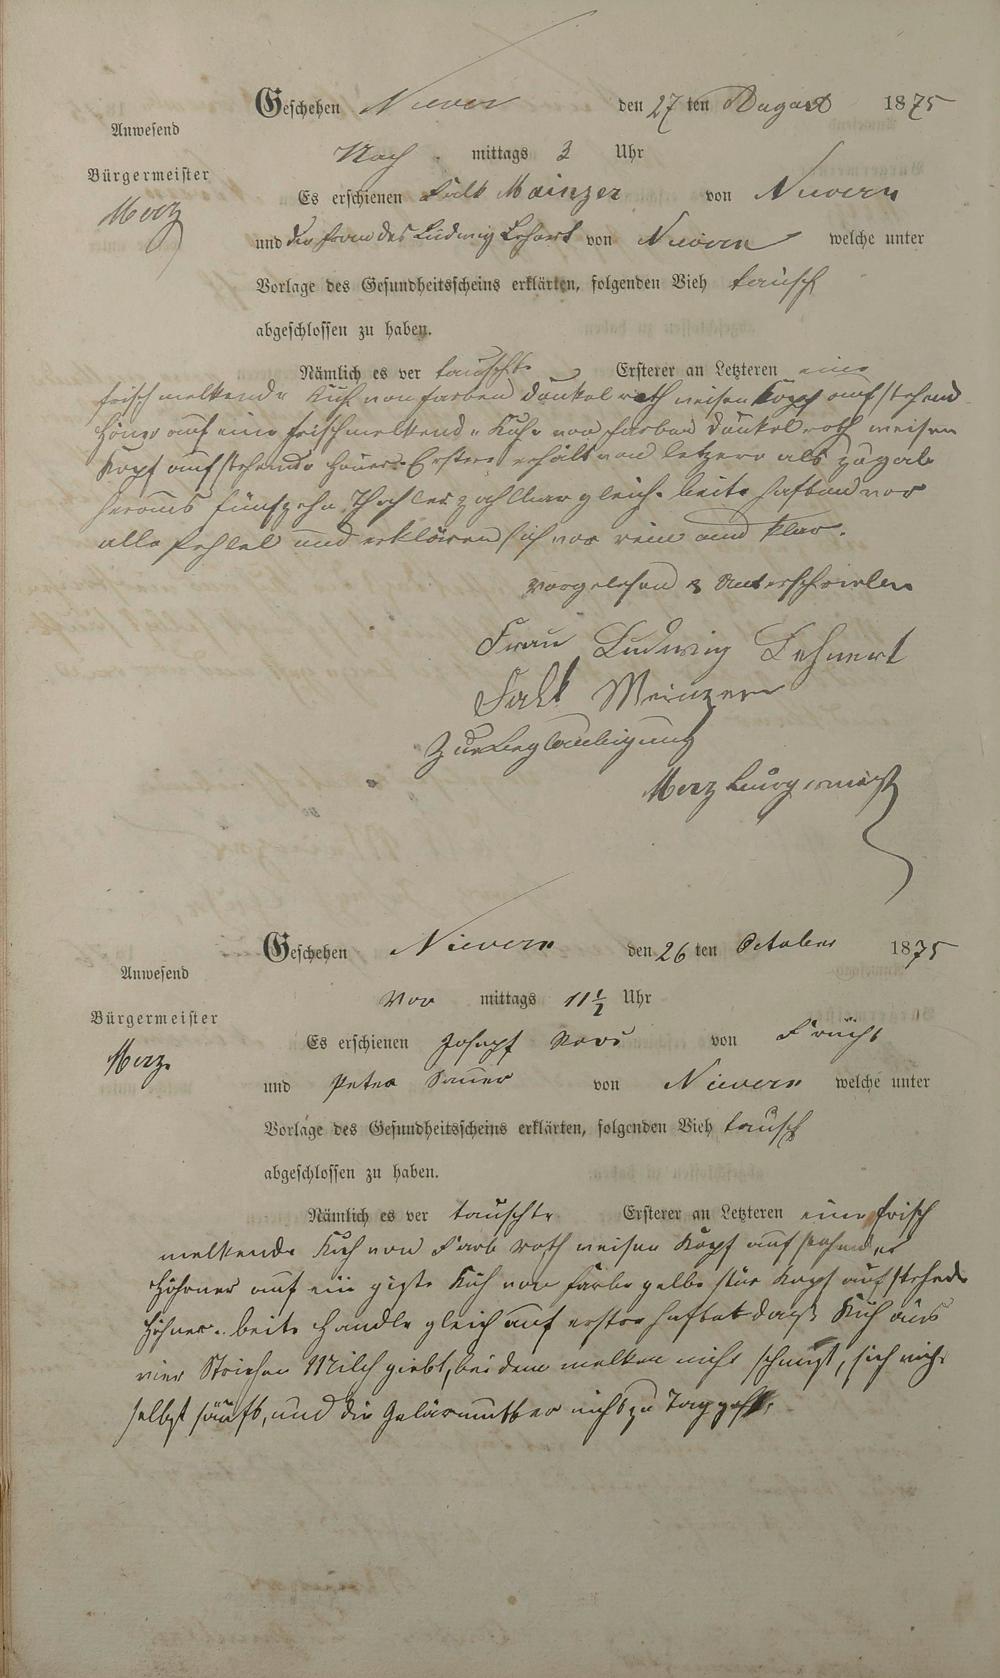 Geschehen Nievern den 27 ten August 1875
Anwesend
Nach mittags 3 Uhr
Bürgermeister
Es erschienen Falk Mainzer von Nievern
Merz
und die Frau des Ludwig Lehnert von Nievern welche unter
Vorlage des Gesundheitsscheins erklärten, folgenden Vieh tausch
abgeschlossen zu haben.
Nämlich es ver tauschte Ersterer an Letzteren eine
frisch melkende Kuh von farben dunkel roth weisen Kopf aufstehend
Höner auf eine frischmelkend Kuh von farben dunkelroth weisen
Kopf aufstehende Höner Erster erhält von letzere als zugabe
heraus fünfzehn Thahler zahlbar gleich. beite haften vor
alle fehlel und erklären sich vor rein und klar.
vorgelesen & Unterschrieben
Frau Ludwig Lehnert
Falk Meinzer
Zur Beglaubigung
Merz Bürgermeist
Geschehen Nievern den 26 ten October 1875
Anwesend
Vor mittags 11 1/2 Uhr
Bürgermeister
Es erschienen Joseph von Frücht
Merz
und Peter Sauer von Nievern welche unter
Vorlage des Gesundheitsscheins erklärten, folgenden Vieh tausch
abgeschlossen zu haben.
Nämlich es ver tauschte Ersterer an Letzteren eine frisch
melkende Kuh von Farb roth weisen Kopf aufstehender
Höhrner auf ein giste Kuh von farbe gelbe Kopf aufstehede
Höhner. beite Handle gleich auf erster haftet daß Kuh aus
vier Strichen Milch giebt, bei dem melken nicht schmeist, sich nicht
selbst säuft, und die Gebärmutter nicht zu Tag geht.